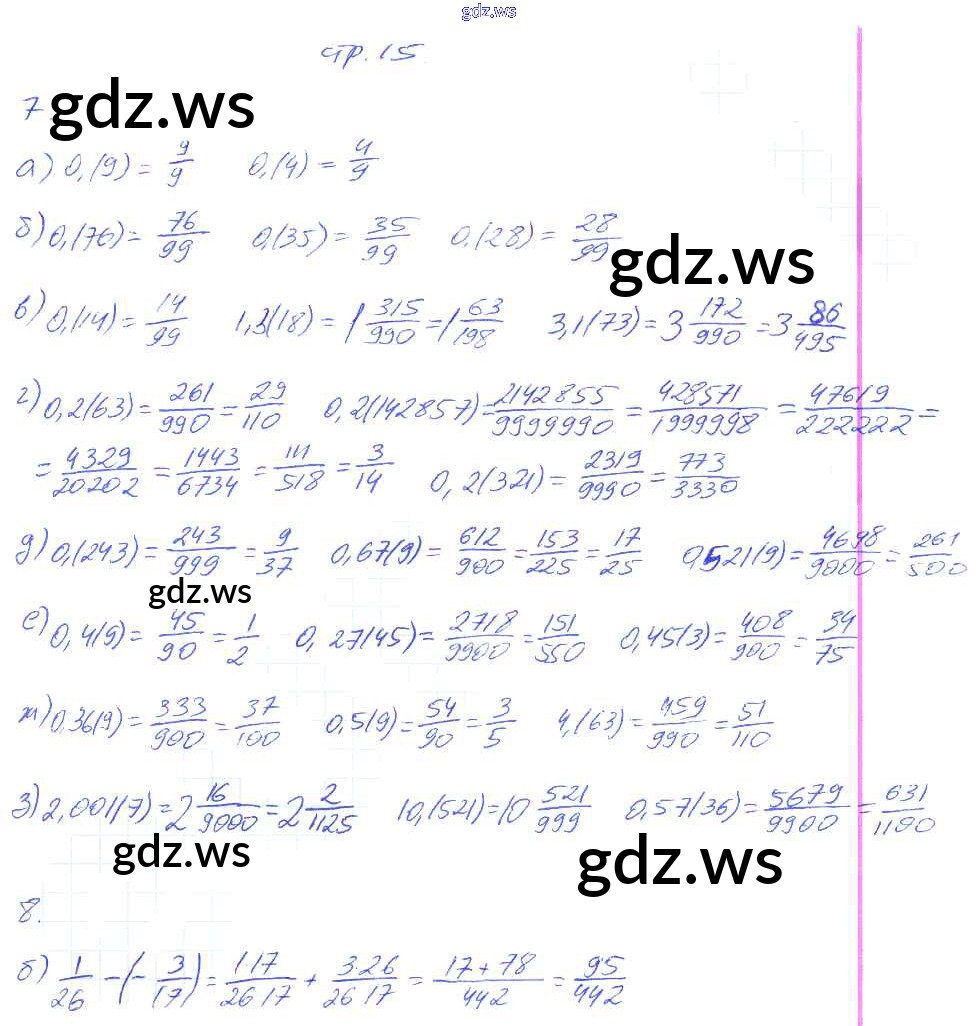 gdz.ws
стр. 15.
7. gdz.ws
а) 0,(9) = 9/9   0,(4) = 4/9
б) 0,(76) = 76/99   0,(35) = 35/99   0,(28) = 28/99
gdz.ws
в) 0,(14) = 14/99   1,3(18) = 1 315/990 = 1 63/198   3,1(73) = 3 172/990 = 3 86/495
г) 0,2(63) = 261/990 = 29/110   0,2(142857) = 2142855/9999990 = 428571/1999998 = 47619/222222 =
= 4329/20202 = 1443/6734 = 111/518 = 3/14   0,2(321) = 2319/9990 = 773/3330
д) 0,(243) = 243/999 = 9/37   0,67(9) = 612/900 = 153/225 = 17/25   0,521(9) = 4698/9000 = 261/500
gdz.ws
е) 0,4(9) = 45/90 = 1/2   0,27(45) = 2718/9900 = 151/550   0,45(3) = 408/900 = 34/75
ж) 0,36(9) = 333/900 = 37/100   0,5(9) = 54/90 = 3/5   4,(63) = 459/990 = 51/110
з) 2,001(7) = 2 16/9000 = 2 2/1125   10,(521) = 10 521/999   0,57(36) = 5679/9900 = 631/1100
gdz.ws gdz.ws
8.
б) 1/26 - (- 3/17) = 1·17/26·17 + 3·26/26·17 = 17+78/442 = 95/442